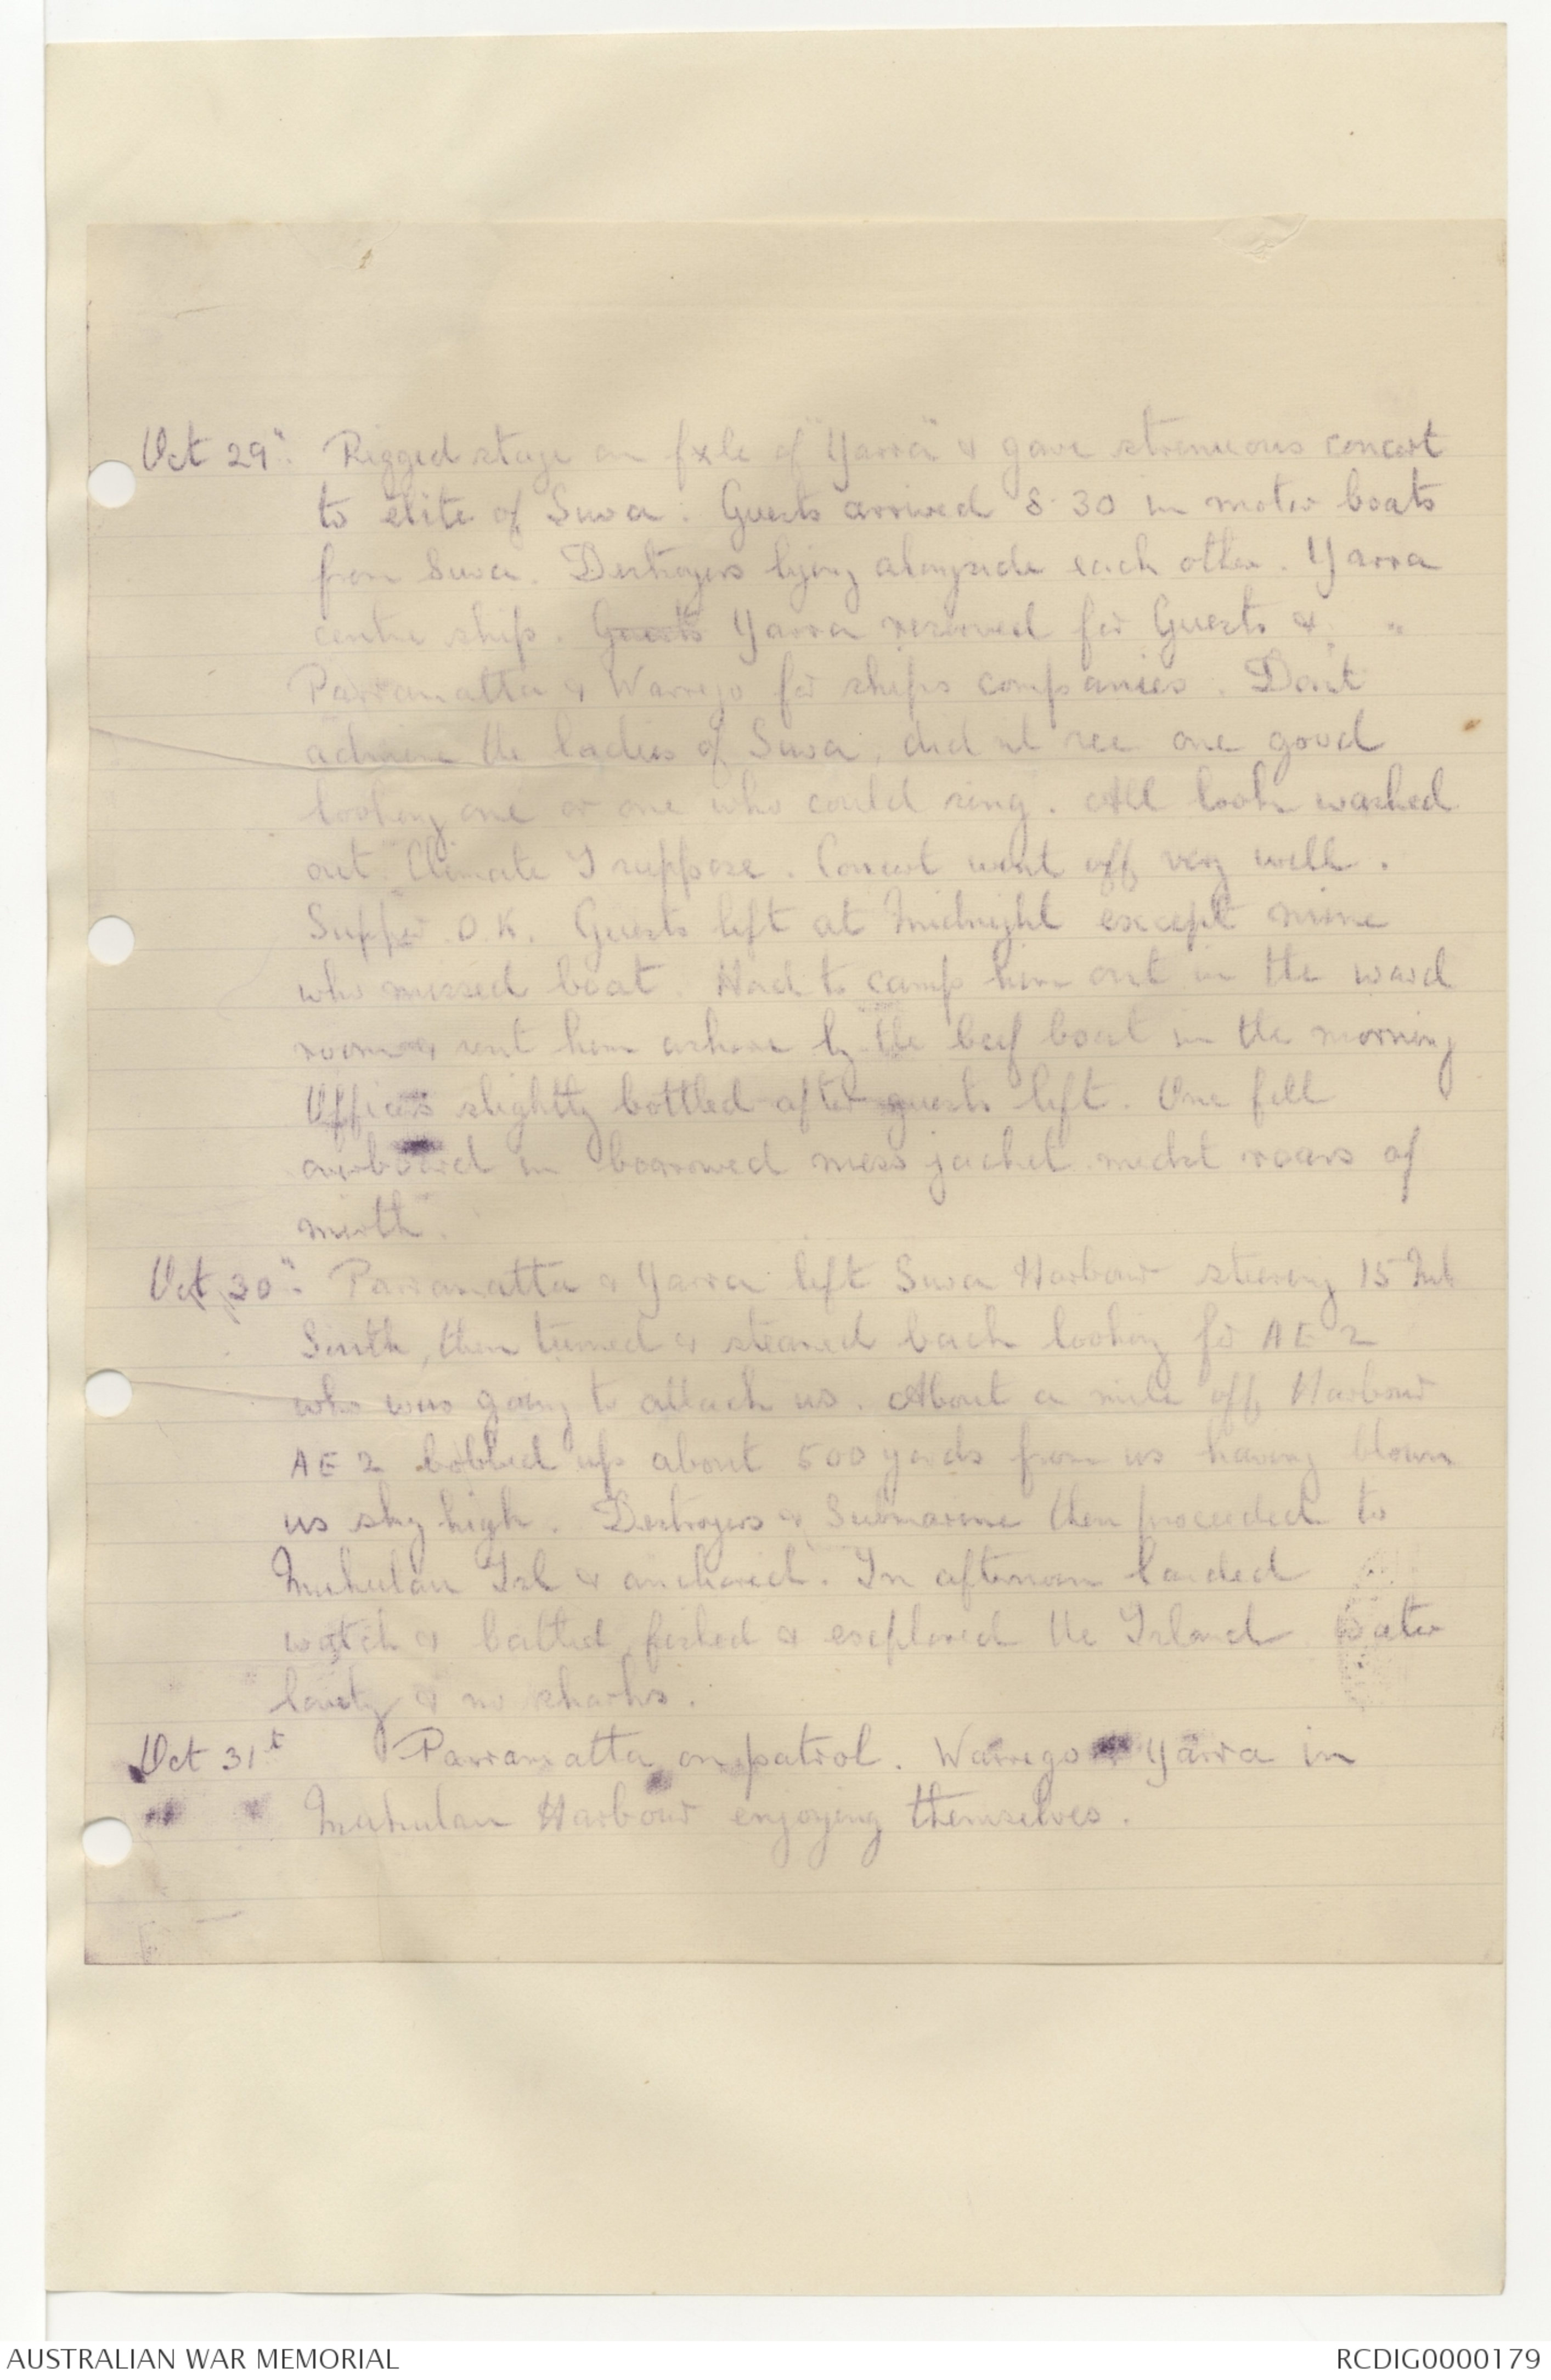 Oct 29" Rigged stage on fxle of "Yarra" & gave strenuous concert
to elite of Suva. Guests arrived 8.30 in motor boats
from Suva. Destroyers lying alongside each other. Yarra
centre ship. Guests Yarra reserved for Guests & "
Parramatta & Warrego for ships companies. Don't
admire the ladies of Suva, did nt see one good
looking one or one who could sing. All look washed
out. Climate I suppose. Concert went off very well.
Supper O.K. Guests left at Midnight except mine
who missed boat. Had to camp him out in the ward
room & sent him ashore by the beef boat in the morning
Officers slightly bottled after guests left. One fell
overboard in borrowed mess jacket midst roars of
mirth.
Oct 30" Parramatta & Yarra left Suva Harbour steering 15 Mls
South, then turned & steamed back looking for AE 2
who was going to attack us. About a mile off Harbour
AE 2 bobbed up about 500 yards from us having blown
us sky high. Destroyers & Submarine then proceeded to
Makulau Isl & anchored. In afternoon landed
watch & batted, fished & explored the Island Water
lovely & no sharks.
Oct 31t Parramatta on patrol. Warrego & Yarra in
Makulau Harbour enjoying themselves.
AUSTRALIAN WAR MEMORIAL
RCDIG0000179